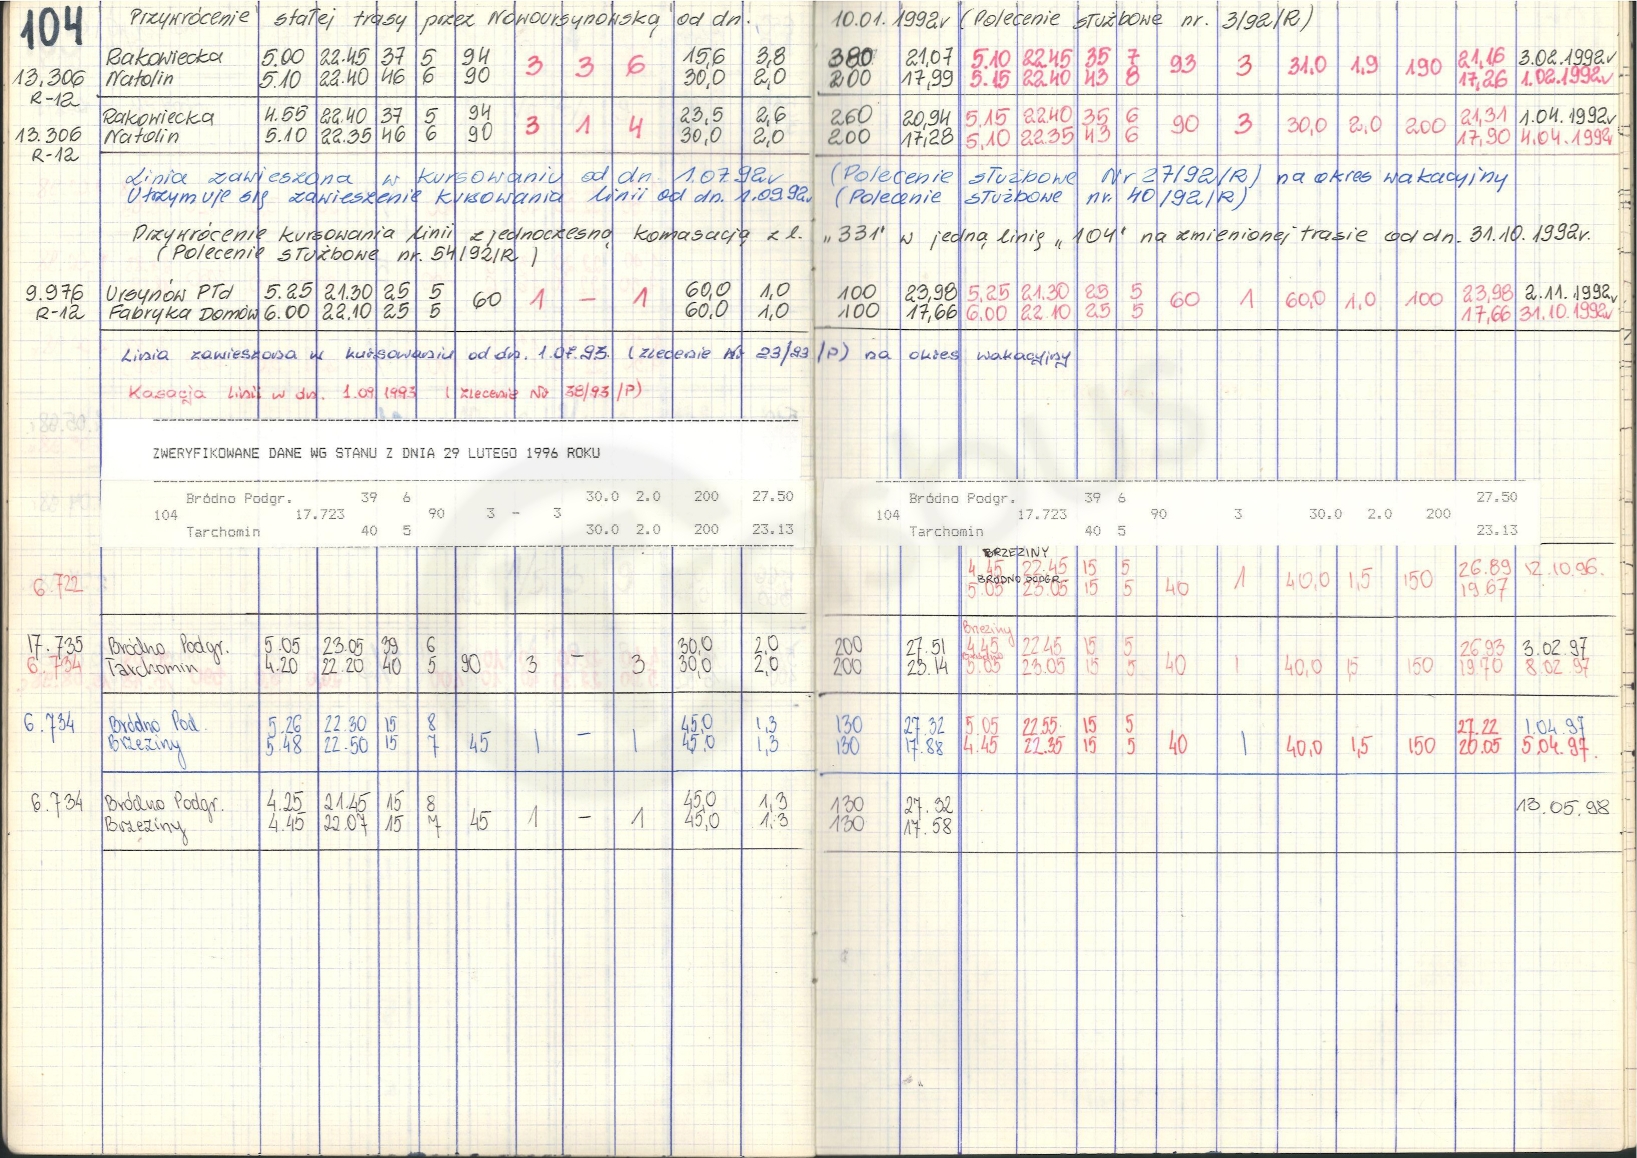 104 Przywrócenie stałej trasy przez Nowoursynowską od dn. 10.01.1992r (Polecenie służbowe nr. 3/92/R)
Rakowiecka 5.00 22.45 37 5 94 3 3 6 15,6 3,8 380 21,07 5.10 22.45 35 7 93 3 31,0 1,9 190 21,16 3.02.1992r
13,306 Natolin 5.10 22.40 46 6 90 30,0 2,0 200 17,99 5.15 22.40 43 8 17,26 1.02.1992r
R-12
Rakowiecka 4.55 22.40 37 5 94 3 1 4 23,5 2,6 260 20,94 5,15 22.40 35 6 90 3 30,0 2,0 200 21,31 1.04.1992r
13.306 Natolin 5.10 22.35 46 6 90 30,0 2,0 200 17,28 5,10 22.35 43 6 17,90 4.04.1992r
R-12
Linia zawieszona w kursowaniu od dn. 1.07.92r (Polecenie służbowe Nr 27/92/R) na okres wakacyjny
Utrzymuje się zawieszenie kursowania linii od dn. 1.09.92r (Polecenie służbowe nr. 40/92/R)
Przywrócenie kursowania linii z jednoczesną komasacją z l. „331" w jedną linię „104" na zmienionej trasie od dn. 31.10.1992r.
(Polecenie służbowe nr. 54/92/R)
9.976 Ursynów Płd 5.25 21.30 25 5 60 1 – 1 60,0 1,0 100 23,98 5,25 21.30 25 5 60 1 60,0 1,0 100 23,98 2.11.1992r
R-12 Fabryka Domów 6.00 22.10 25 5 60,0 1,0 100 17,66 6,00 22.10 25 5 17,66 31.10.1992r
Linia zawieszona w kursowaniu od dn. 1.07.93. (Zlecenie Nr 23/93/P) na okres wakacyjny
Kasacja linii w dn. 1.09.1993 (Zlecenie Nr 38/93/P)
ZWERYFIKOWANE DANE WG STANU Z DNIA 29 LUTEGO 1996 ROKU
Bródno Podgr. 39 6 30.0 2.0 200 27.50 Bródno Podgr. 39 6 27.50
104 17.723 90 3 - 3 104 17.723 90 3 30.0 2.0 200
Tarchomin 40 5 30.0 2.0 200 23.13 Tarchomin 40 5 23.13
BRZEZINY
4.45 22.45 15 5 26.89 12.10.96.
6.722 BRÓDNO PODGR. 40 1 40,0 1,5 150
5.05 23.05 15 5 19.67
Brzeziny
17.735 Bródno Podgr. 5.05 23.05 39 6 30,0 2,0 200 27.51 4.45 22.45 15 5 26.93 3.02.97
6.734 Tarchomin 4.20 22.20 40 5 90 3 – 3 30,0 2,0 200 23.14 5.05 23.05 15 5 40 1 40,0 1,5 150 19.70 8.02.97
6.734 Bródno Pod. 5.26 22.30 15 8 45,0 1,3 130 27.32 5.05 22.55 15 5 27.22 1.04.97
Brzeziny 5.48 22.50 15 7 45 1 – 1 45,0 1,3 130 17.88 4.45 22.35 15 5 40 1 40,0 1,5 150 20.05 5.04.97.
6.734 Bródno Podgr. 4.25 21.45 15 8 45,0 1,3 130 27.32 13.05.98
Brzeziny 4.45 22.07 15 7 45 1 – 1 45,0 1,3 130 17.58